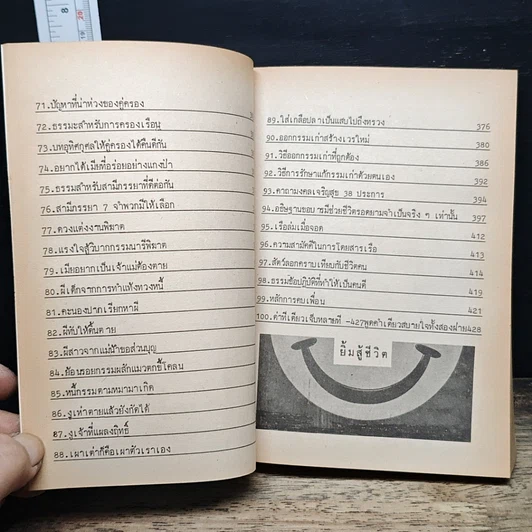 71.ปัญหาที่น่าห่วงของคู่ครอง
72.ธรรมะสำหรับการครองเรือน
73.บทอุทิศกุศลให้คู่ครองได้คืนดีกัน
74.อยากได้เมียที่อร่อยอย่างแกงป่า
75.ธรรมสำหรับสามีภรรยาที่ดีต่อกัน
76.สามีภรรยา 7 จำพวกมีให้เลือก
77.ดวงแต่งงานพิฆาต
78.แรงใจสู้วิบากกรรมนารีพิฆาต
79.เมียอยากเป็นเจ้าแม่ต้องตาย
80.ผีเด็กจากการทำแท้งทวงหนี้
81.คะนองปากเรียกหาผี
82.ผีทับให้ดิ้นตาย
83.ผีสาวจากแม่น้ำขอส่วนบุญ
84.ย้อนรอยกรรมผลักแมวตกขี้โคลน
85.หนี้กรรมตามหมามาเกิด
86.งูเห่าตายแล้วยังกัดได้
87.งูเจ้าที่แผลงฤทธิ์
88.เผาเต่าก็คือเผาตัวเราเอง
89.ใส่เกลือปลาเป็นแสบไปถึงทรวง 376
90.ออกกรรมเก่าสร้างเวรใหม่ 380
91.วิธีออกกรรมเก่าที่ถูกต้อง 386
92.วิธีการรักษาแก้กรรมเก่าด้วยตนเอง 392
93.คาถามงคลเจริญสุข 38 ประการ 394
94.อธิษฐานขอบารมีช่วยชีวิตรอดตายจำเป็นจริง ๆ เท่านั้น 397
95.เรือล่มเมื่อจอด 412
96.ความสามัคคีในการโดยสารเรือ 413
97.สัตว์ลอกคราบเทียบกับชีวิตคน 414
98.ธรรมข้อปฏิบัติที่ทำให้เป็นคนดี 419
99.หลักการคบเพื่อน 421
100.ด่าทีเดียวเจ็บหลายที -427พูดคำเดียวสบายใจทั้งสองฝ่าย428
ยิ้มสู้ชีวิต
8